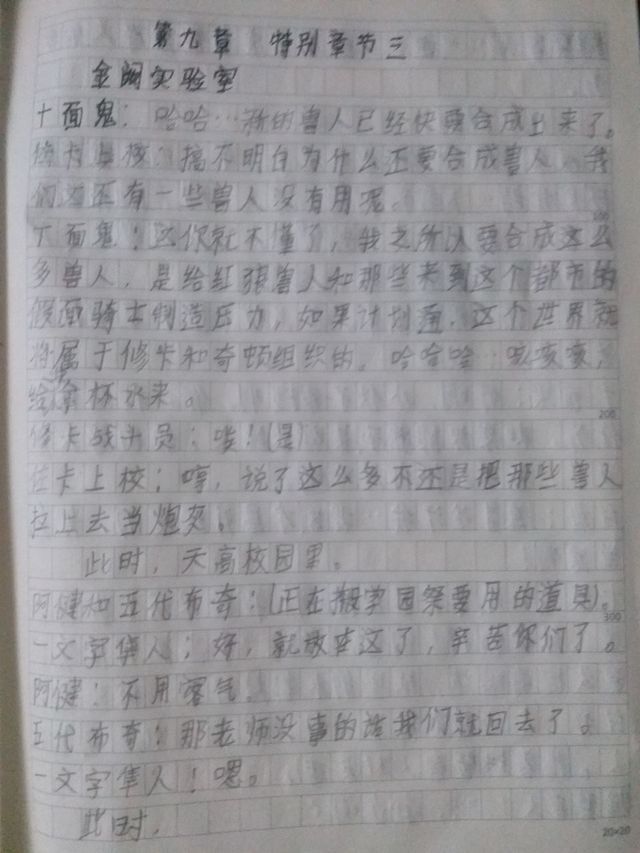 第九章 特别章节三
金阙实验室
十面鬼：哈哈…新的兽人已经快要合成出来了。
修卡上校：搞不明白为什么还要合成兽人，我
们不还有一些兽人没有用呢。
十面鬼：这你就不懂了，我之所以要合成这么
多兽人，是给红狼兽人和那些来到这个都市的
假面骑士制造压力，如果计划，这个世界就
将属于修卡和奇顿组织的。哈哈哈 咳咳咳，
给拿杯水来。
修卡战斗员：喽！(是)
修卡上校：哼，说了这么多不还是把那些兽人
拉上去当炮灰。
此时，天高校园里。
阿健和五代布奇：(正在搬学园祭要用的道具)。
一文字隼人：好，就放在这了，辛苦你们了。
阿健：不用客气。
五代布奇：那老师没事的话我们就回去了。
一文字隼人：嗯。
此时，
100
200
300
20×20